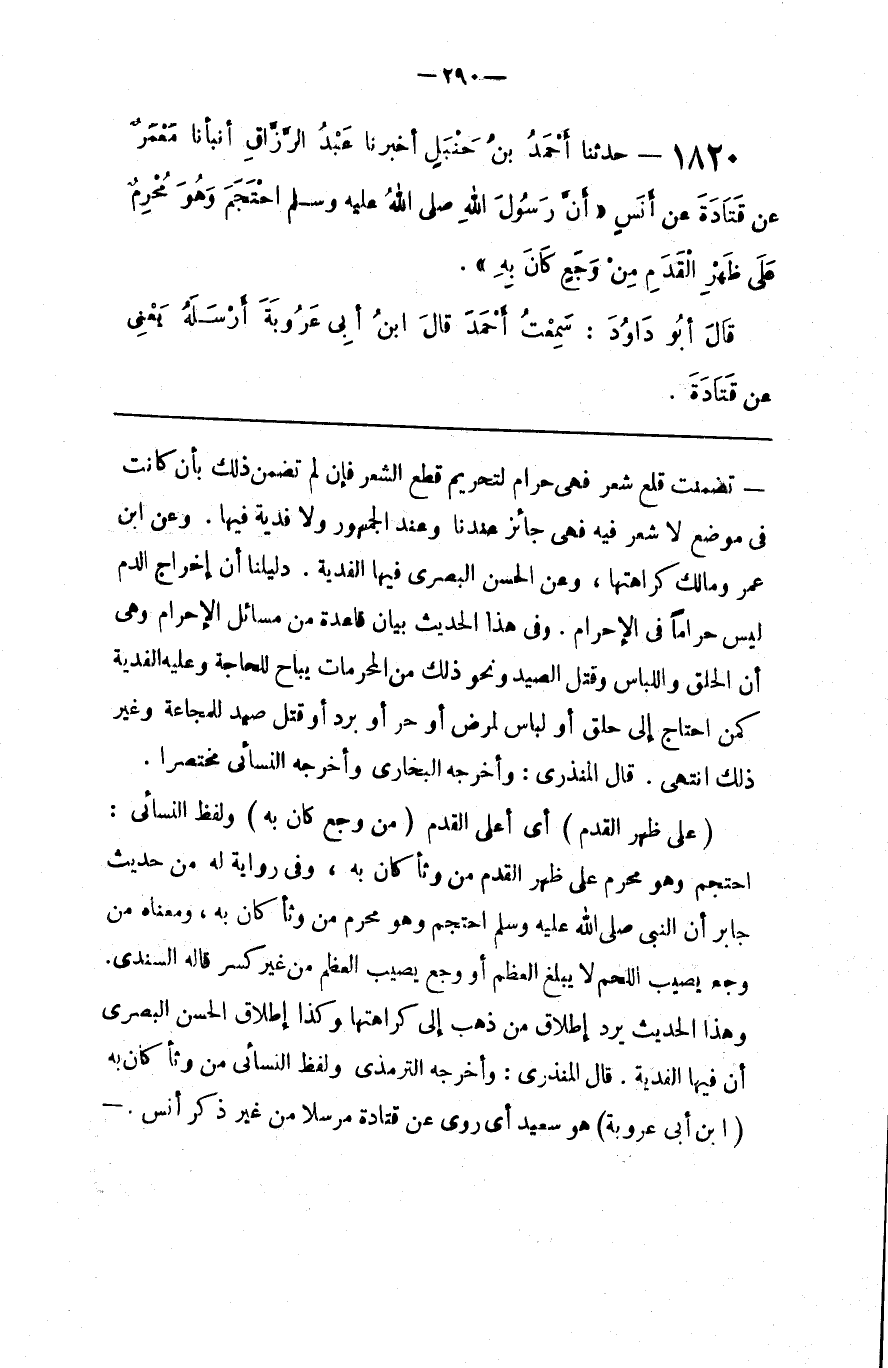 — ٢٩٠ —
١٨٢٠ — حدثنا أَحْمَدُ بنُ حَنْبَلٍ أخبرنا عَبْدُ الرَّزَّاقِ أنبأنا مَعْمَرٌ
عن قَتَادَةَ عن أَنَسٍ « أَنَّ رَسُولَ اللهِ صلى اللهُ عليه وسلم احْتَجَمَ وَهُوَ مُحْرِمٌ
عَلَى ظَهْرِ الْقَدَمِ مِنْ وَجَعٍ كَانَ بِهِ » .
قَالَ أَبُو دَاوُدَ : سَمِعْتُ أَحْمَدَ قالَ ابنُ أَبِى عَرُوبَةَ أَرْسَلَهُ يَعْنِى
عن قَتَادَةَ .
— تضمنت قلع شعر فهى حرام لتحريم قطع الشعر فإن لم تضمن ذلك بأن كانت
فى موضع لا شعر فيه فهى جائز عندنا وعند الجمهور ولا فدية فيها . وعن ابن
عمر ومالك كراهتها ، وعن الحسن البصرى فيها الفدية . دليلنا أن إخراج الدم
ليس حراماً فى الإحرام . وفى هذا الحديث بيان قاعدة من مسائل الإحرام وهى
أن الحلق واللباس وقتل الصيد ونحو ذلك من المحرمات يباح للحاجة وعليه الفدية
كمن احتاج إلى حلق أو لباس لمرض أو حر أو برد أو قتل صيد للمجاعة وغير
ذلك انتهى . قال المنذرى : وأخرجه البخارى وأخرجه النسائى مختصرا .
( على ظهر القدم ) أى أعلى القدم ( من وجع كان به ) ولفظ النسائى :
احتجم وهو محرم على ظهر القدم من وثأ كان به ، وفى رواية له من حديث
جابر أن النبى صلى الله عليه وسلم احتجم وهو محرم من وثأ كان به ، ومعناه من
وجع يصيب اللحم لا يبلغ العظم أو وجع يصيب العظم من غير كسر قاله السندى.
وهذا الحديث يرد إطلاق من ذهب إلى كراهتها وكذا إطلاق الحسن البصرى
أن فيها الفدية . قال المنذرى : وأخرجه الترمذى ولفظ النسائى من وثأ كان به
( ابن أبى عروبة) هو سعيد أى روى عن قتادة مرسلا من غير ذكر أنس . —